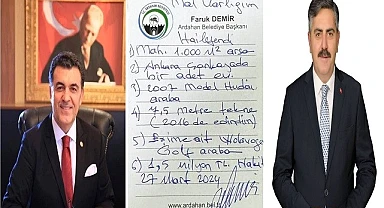 Mal Varlığım
Faruk DEMİR
Ardahan Belediye Başkanı
Halilefendi
1) Mah. 1.000 M² arsa
2) Ankara Çankayada
bir adet evi
3) 2007 Model Hudai
araba
4) 7,5 metre tekne
(2016 da edindim)
5) Eşime ait
Golf araba
6) 1,5 milyon TL. Nakit
27 Mart 2024
www.ardahan.bel.tr